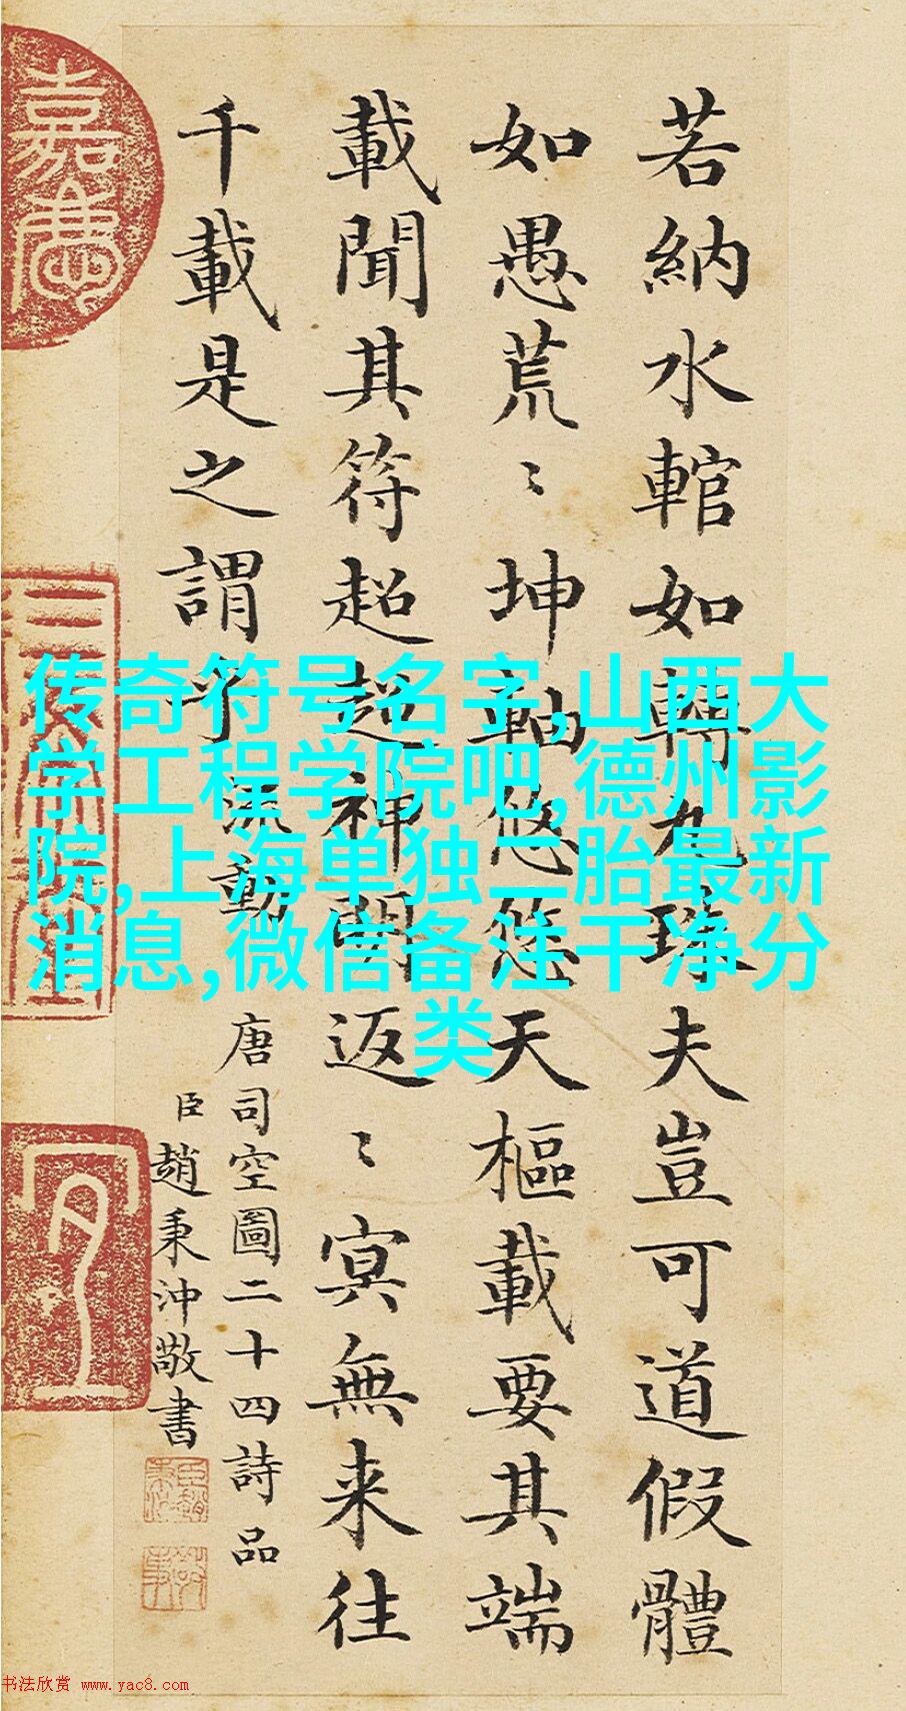 若納水輨如轉丸珠夫豈可道假體
如愚荒〻坤軸悠悠天樞載要其端
載聞其符超超神明返〻冥無来往
千載是之謂乎 流動
唐司空圖二十四詩品
臣趙秉沖敬書
嘉慶
传奇符号名字,山西大
学工程学院吧,德州影
院,上海单独二胎最新
消息,微信备注干净分
类
书法欣赏 www.yac8.com